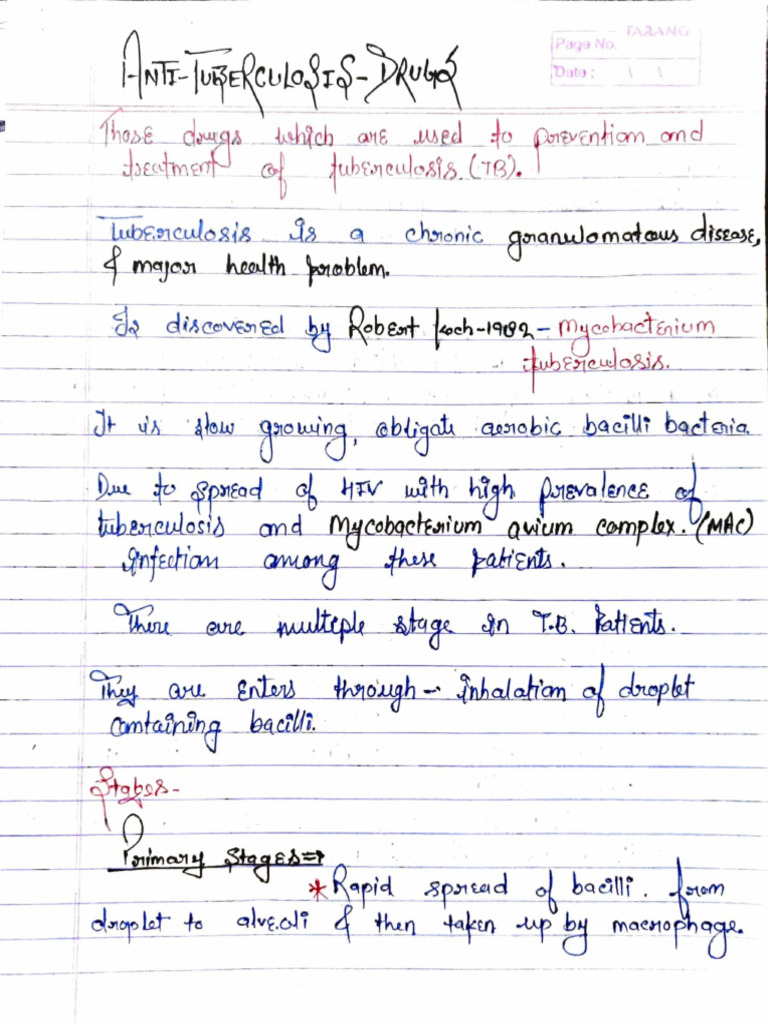 TARANG
Page No.
Date :
ANTI-TUBERCULOSIS-DRUGS
Those drugs which are used to prevention and
treatment of tuberculosis.(TB).
Tuberculosis is a chronic granulomatous disease,
& major health problem.
Is discovered by Robert Koch-1982 - Mycobacterium
tuberculosis.
It is slow growing, obligate aerobic bacilli bacteria.
Due to spread of HIV with high prevalence of
tuberculosis and Mycobacterium avium complex.(MAC)
infection among these patients.
There are multiple stage in T.B. Patients.
They are enters through - inhalation of droplet
containing bacilli.
Stages-
Primary Stages⇒
* Rapid spread of bacilli. from
droplet to alveoli & then taken up by macrophage.